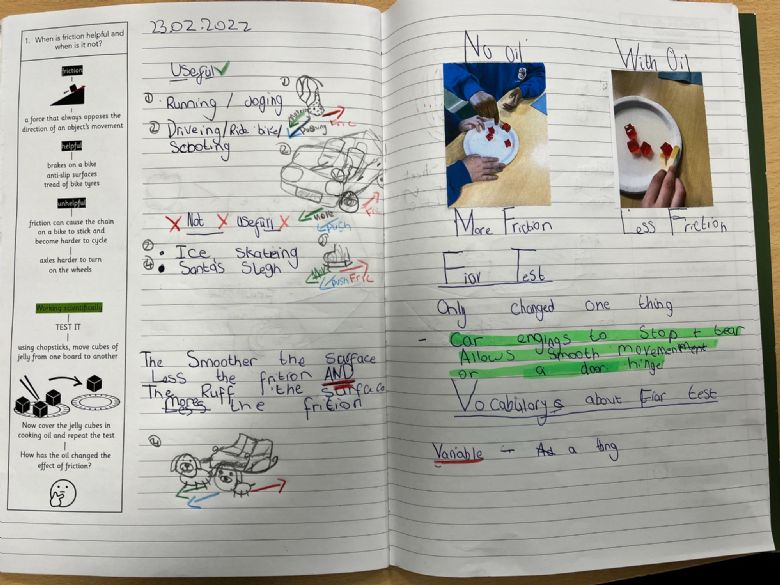 1. When is friction helpful and
when is it not?
friction
a force that always opposes the
direction of an object's movement
helpful
brakes on a bike
anti-slip surfaces
tread of bike tyres
unhelpful
friction can cause the chain
on a bike to stick and
become harder to cycle
axles harder to turn
on the wheels
Working scientifically
TEST IT
using chopsticks, move cubes of
jelly from one board to another
Now cover the jelly cubes in
cooking oil and repeat the test
How has the oil changed the
effect of friction?
23.02.2022
Useful
① Running / joging
② Driveing/Ride bike/
Scooting
①
Pushing
Fric
②
Move
Push
Fri
Not Useful
③ • Ice skateing
④ • Santa's Slegh
③
Push Fric
The Smoother the surface
Less the frition AND
The Ruff the surface
mores the frition
④
No oil
With Oil
More Friction
Less Friction
Fiar Test
Only changed one thing
- Car engings to stop + tear
Allows smooth movement
or a door hinge
Vocabularys about Fiar test
Variable - a ting